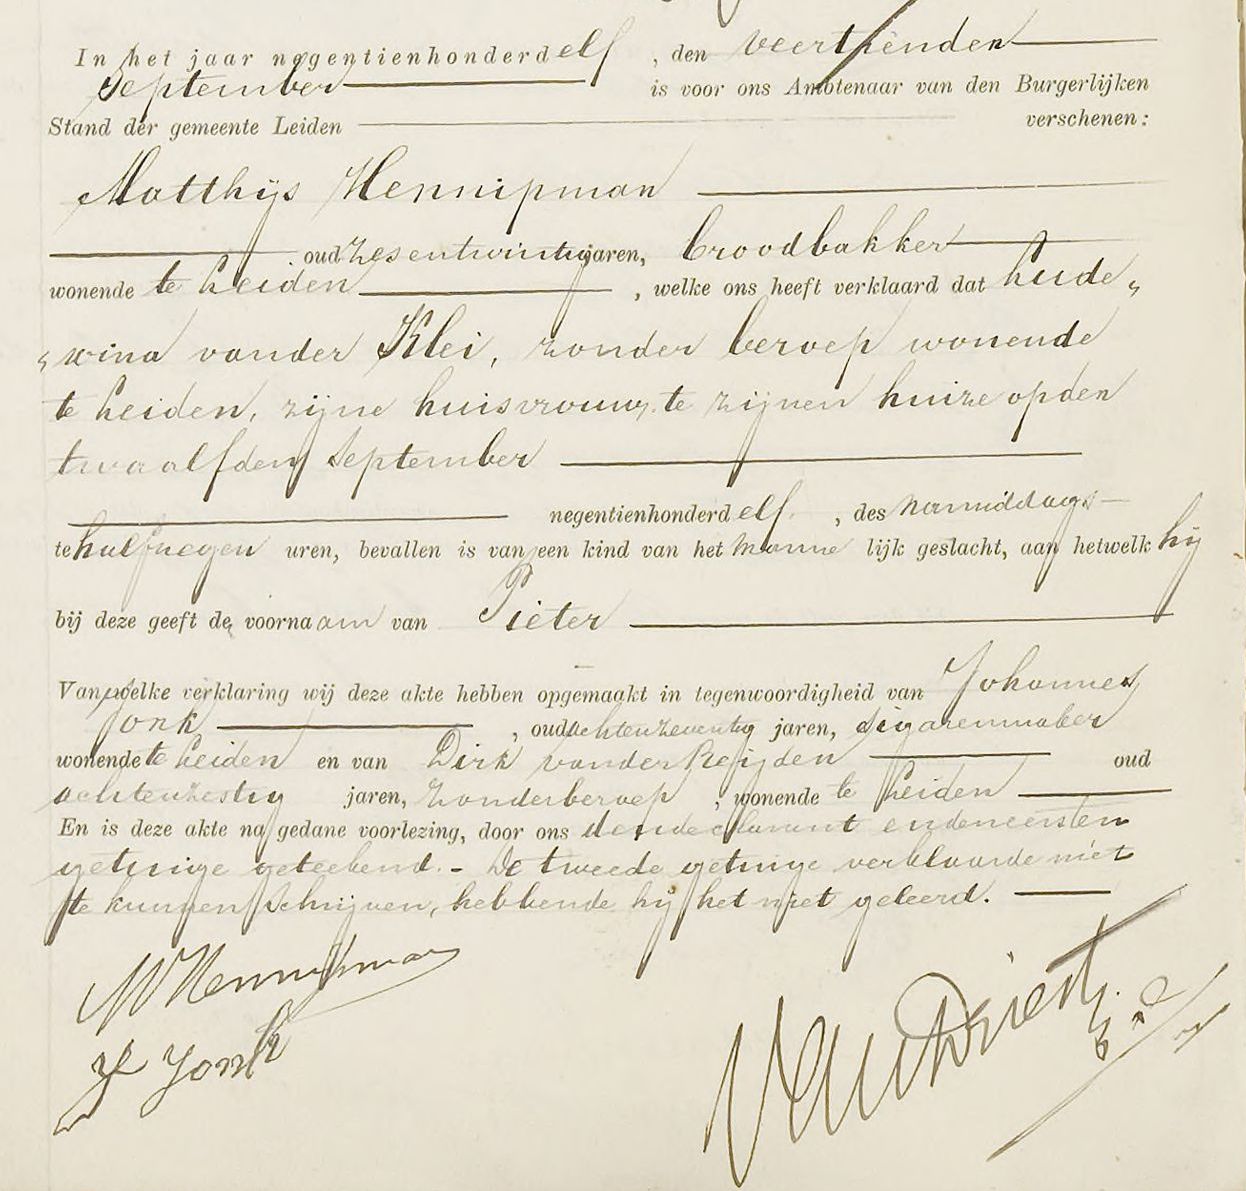 In het jaar negentienhonderd elf, den veertienden
September is voor ons Ambtenaar van den Burgerlijken
Stand der gemeente Leiden verschenen:
Matthijs Hennipman
oud zesentwintig jaren, broodbakker
wonende te Leiden, welke ons heeft verklaard dat Lude„
„wina van der Klei, zonder beroep wonende
te Leiden, zijne huisvrouw, te zijnen huize op den
twaalfden September
negentienhonderd elf, des namiddags
te half negen uren, bevallen is van een kind van het manne lijk geslacht, aan hetwelk hij
bij deze geeft de voornaam van Pieter
Van welke verklaring wij deze akte hebben opgemaakt in tegenwoordigheid van Johannes
Jonk, oud achtenzeventig jaren, sigarenmaker
wonende te Leiden en van Dirk van der Reijden oud
achtenzestig jaren, zonder beroep, wonende te Leiden
En is deze akte na gedane voorlezing, door ons den declarant en den eersten
getuige geteekend. - De tweede getuige verklaarde niet
te kunnen schrijven, hebbende hij het niet geleerd.
M Hennipman
J Jonk